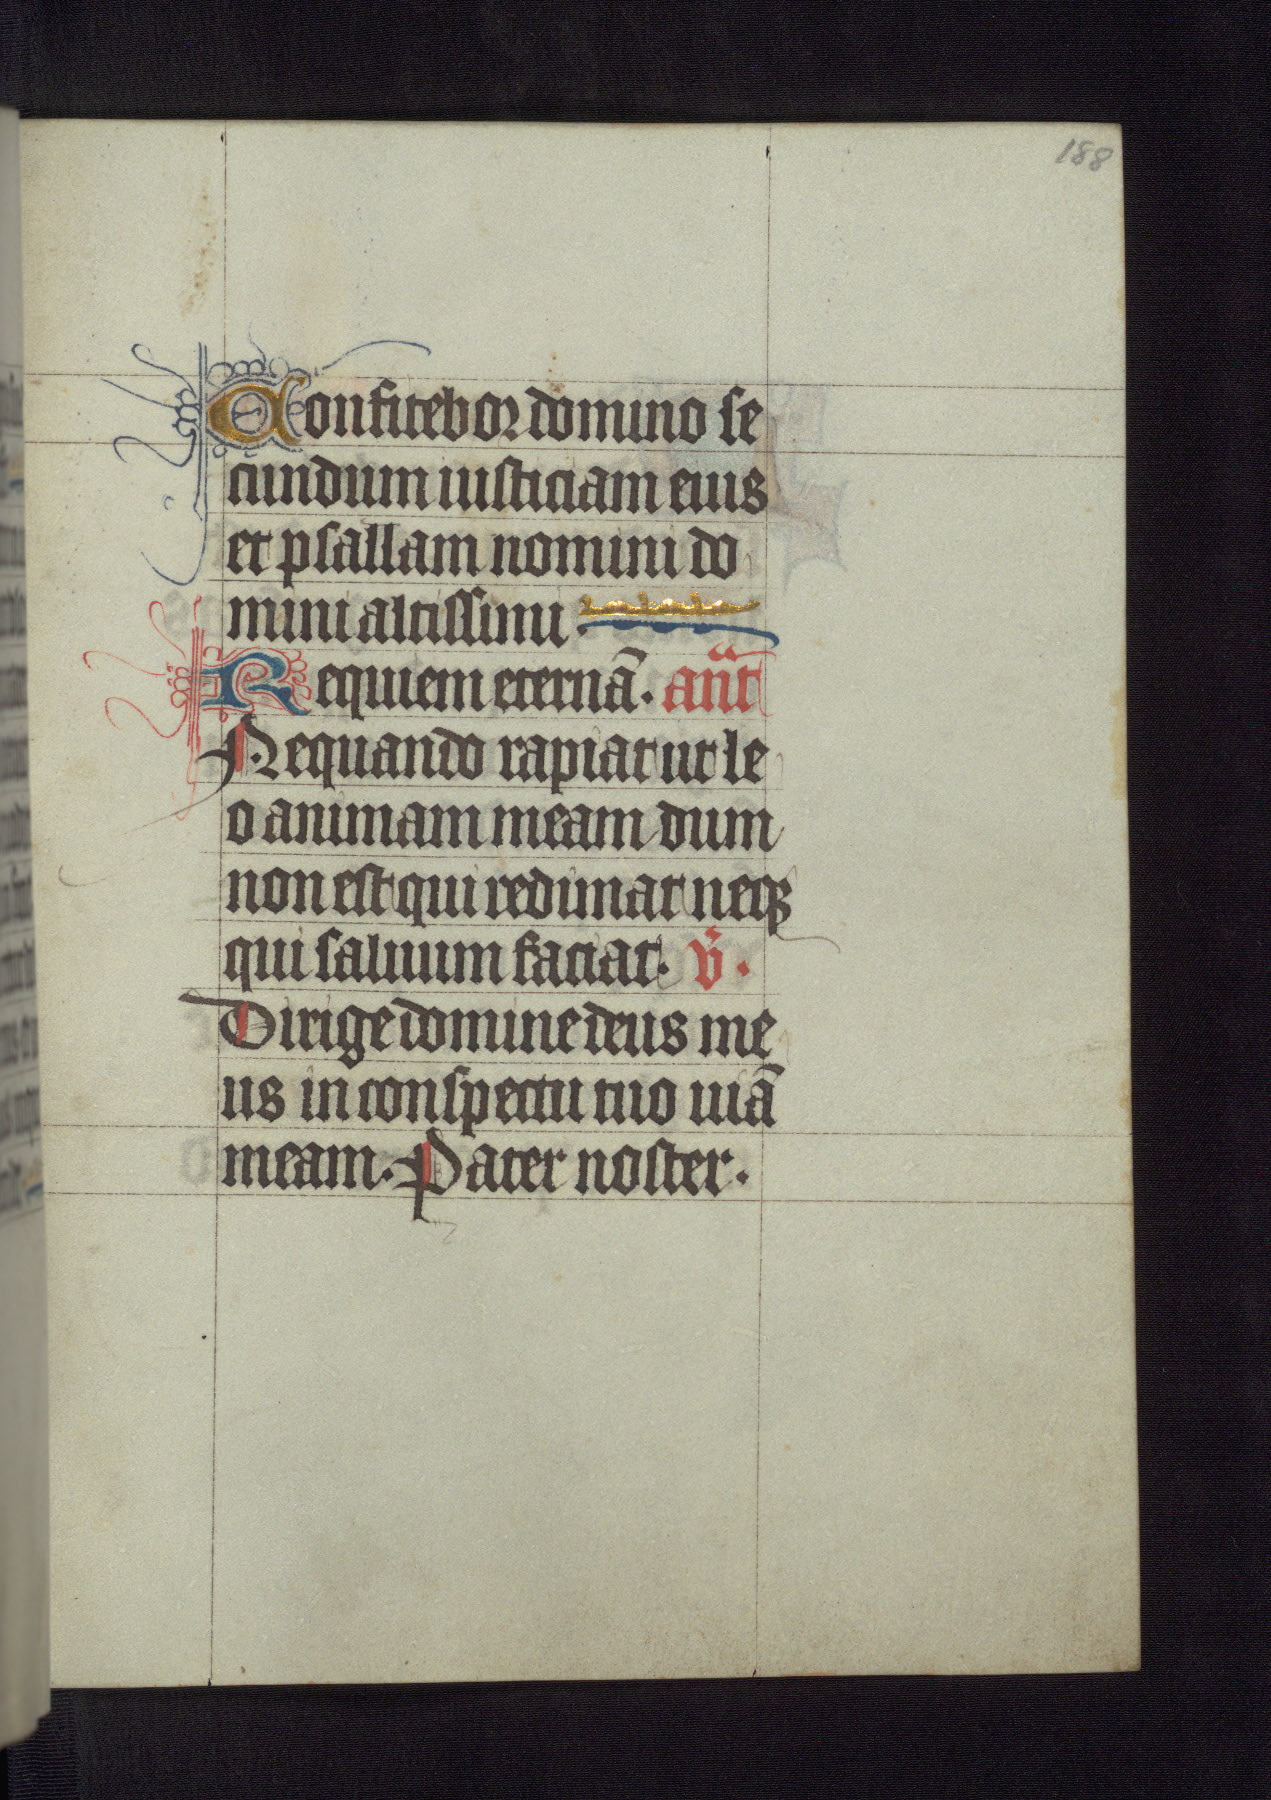 188
Confitebor domino se
cundum iusticiam eius
et psallam nomini do
mini altissimi.
Requiem eternā. an̄t
Nequando rapiat ut le
o animam meam dum
non est qui redimat neqꝫ
qui saluum faciat. v̄.
Dirige domine deus me
us in conspectu tuo uiā
meam. Pater noster.